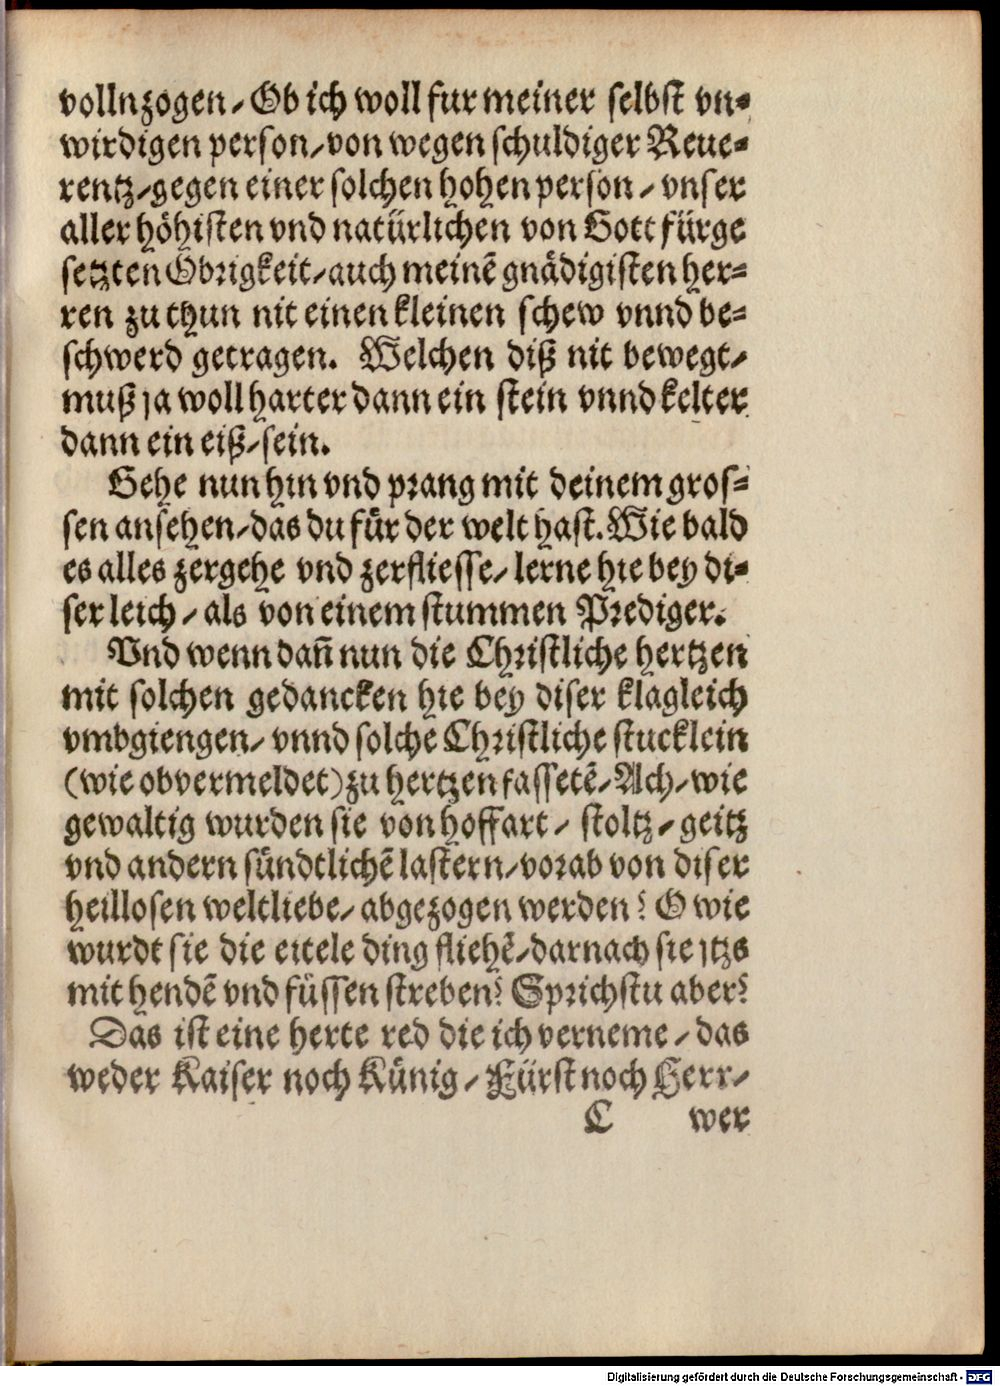 vollnzogen/ Ob ich woll fur meiner selbst vn-
wirdigen person/ von wegen schuldiger Reue-
rentz/ gegen einer solchen hohen person/ vnser
aller höhisten vnd natürlichen von Gott fürge
setzten Obrigkeit/ auch meinē gnädigisten her-
ren zu thun nit einen kleinen schew vnnd be-
schwerd getragen. Welchen diß nit bewegt/
muß ja woll harter dann ein stein vnnd kelter
dann ein eiß/ sein.
Gehe nun hin vnd prang mit deinem gros-
sen ansehen/ das du für der welt hast. Wie bald
es alles zergehe vnd zerfliesse/ lerne hie bey di-
ser leich/ als von einem stummen Prediger.
Vnd wenn dañ nun die Christliche hertzen
mit solchen gedancken hie bey diser klagleich
vmbgiengen/ vnnd solche Christliche stucklein
(wie obvermeldet) zu hertzen fassetē/ Ach/ wie
gewaltig wurden sie von hoffart/ stoltz/ geitz
vnd andern sündtlichē lastern/ vorab von diser
heillosen weltliebe/ abgezogen werden? O wie
wurdt sie die eitele ding fliehē/ darnach sie jtzs
mit hendē vnd füssen streben? Sprichstu aber?
Das ist eine herte red die ich verneme/ das
weder Kaiser noch Künig/ Fürst noch Herr/
C wer
Digitalisierung gefördert durch die Deutsche Forschungsgemeinschaft - DFG